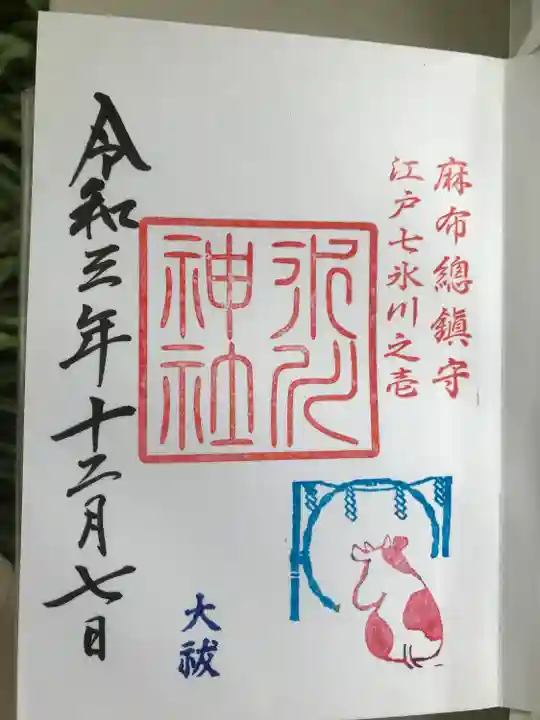 麻布總鎮守
江戸七氷川之壱
氷川
神社
大祓
令和三年十二月七日